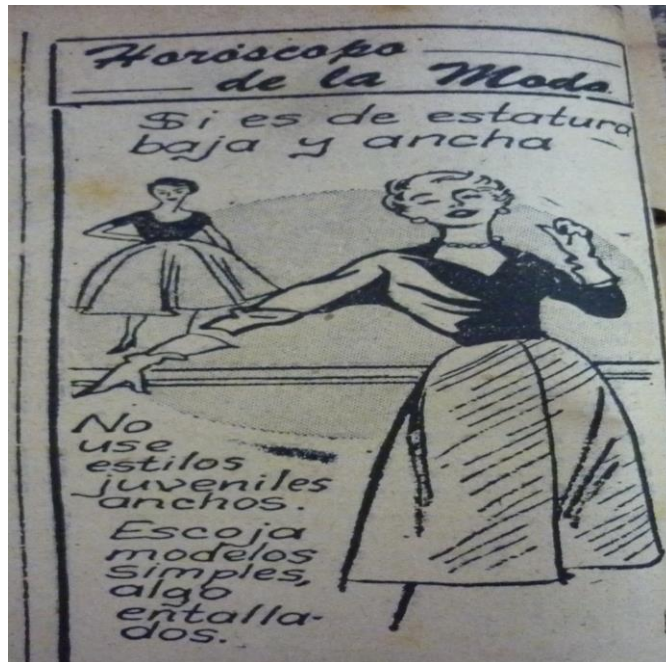 Horóscopo
de la Moda
Si es de estatura
baja y ancha
No
use
estilos
juveniles
anchos.
Escoja
modelos
simples,
algo
entalla-
dos.